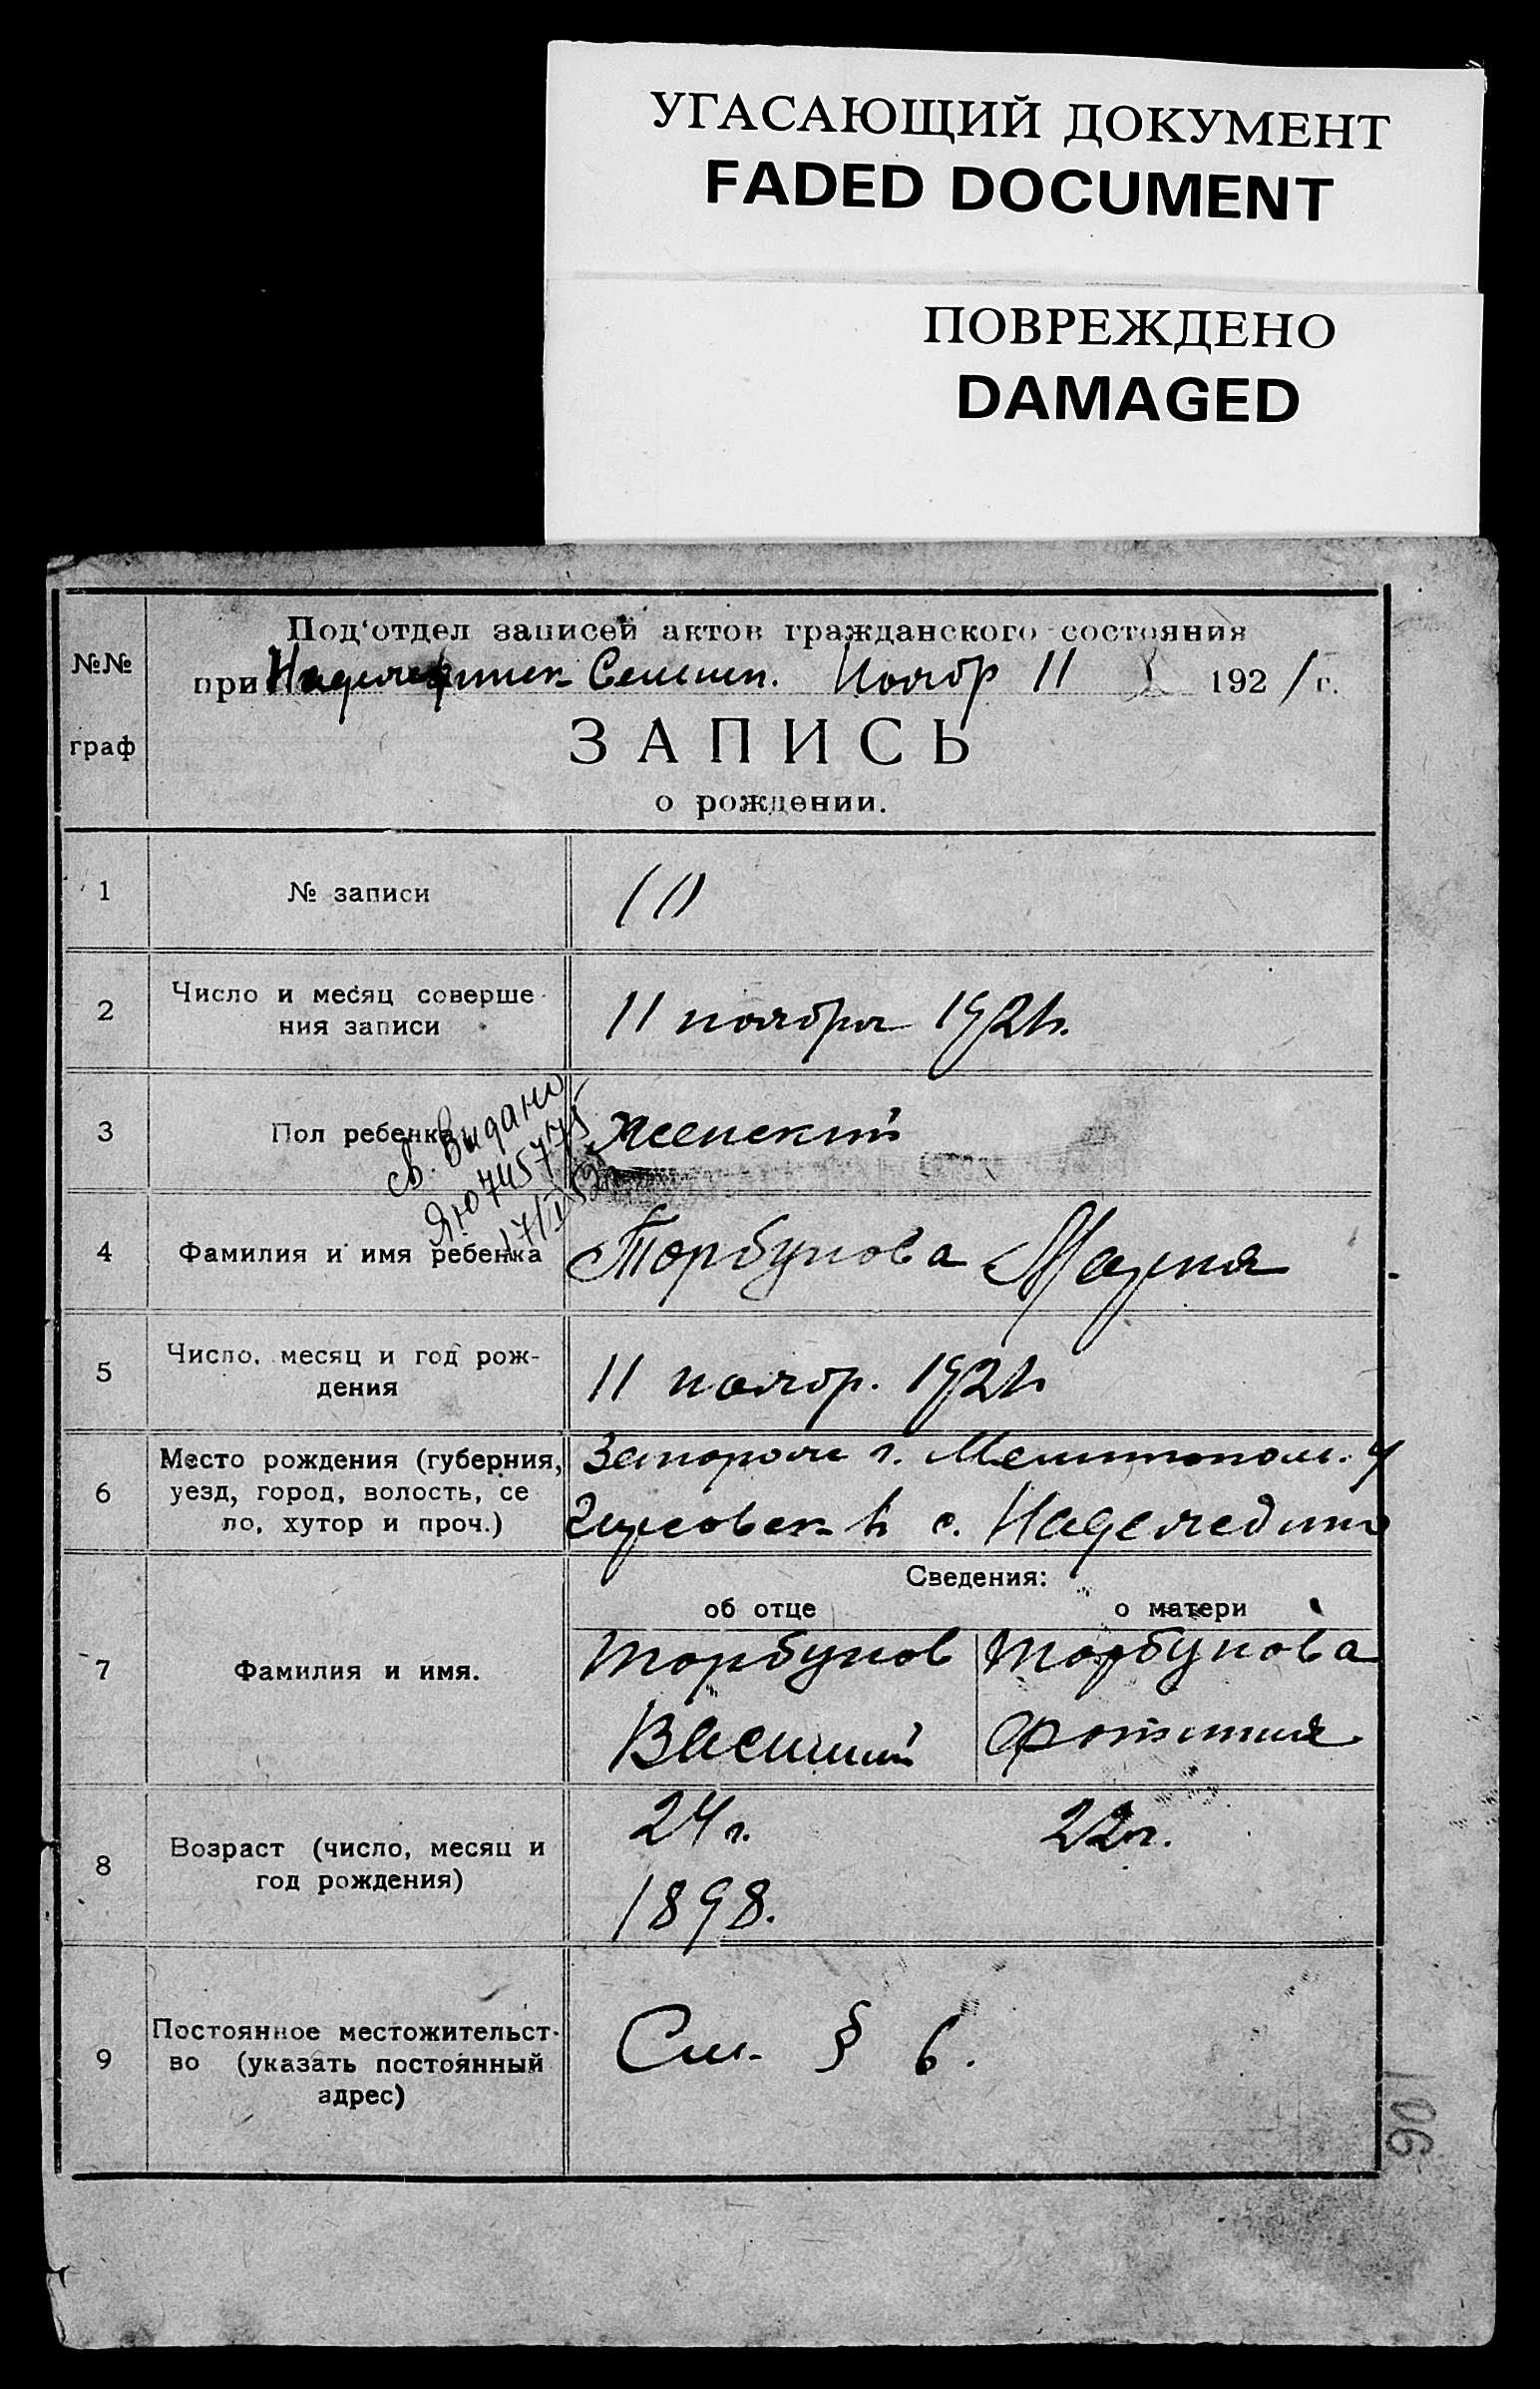 УГАСАЮЩИЙ ДОКУМЕНТ
FADED DOCUMENT
ПОВРЕЖДЕНО
DAMAGED
№№
граф
Под‘отдел записей актов гражданского состояния
при Селищн. Ноябр 11 1921 г.
ЗАПИСЬ
о рождении.
1
№ записи
2
Число и месяц соверше-
ния записи
11 ноября 1921 г.
3
Пол ребенка
Женский
св. Видано
ЯЮ 745775
17/II
4
Фамилия и имя ребенка
Торбунова Мария
5
Число, месяц и год рож-
дения
11 ноябр. 1921 г.
6
Место рождения (губерния,
уезд, город, волость, се
ло, хутор и проч.)
Запорож г. Мелитопол. у
в. с. Надеждино
Сведения:
об отце
о матери
7
Фамилия и имя.
Торбунов
Василий
Торбунова
Фотиния
8
Возраст (число, месяц и
год рождения)
24 г.
1898.
22 г.
9
Постоянное местожительст-
во (указать постоянный
адрес)
См. § 6.
106